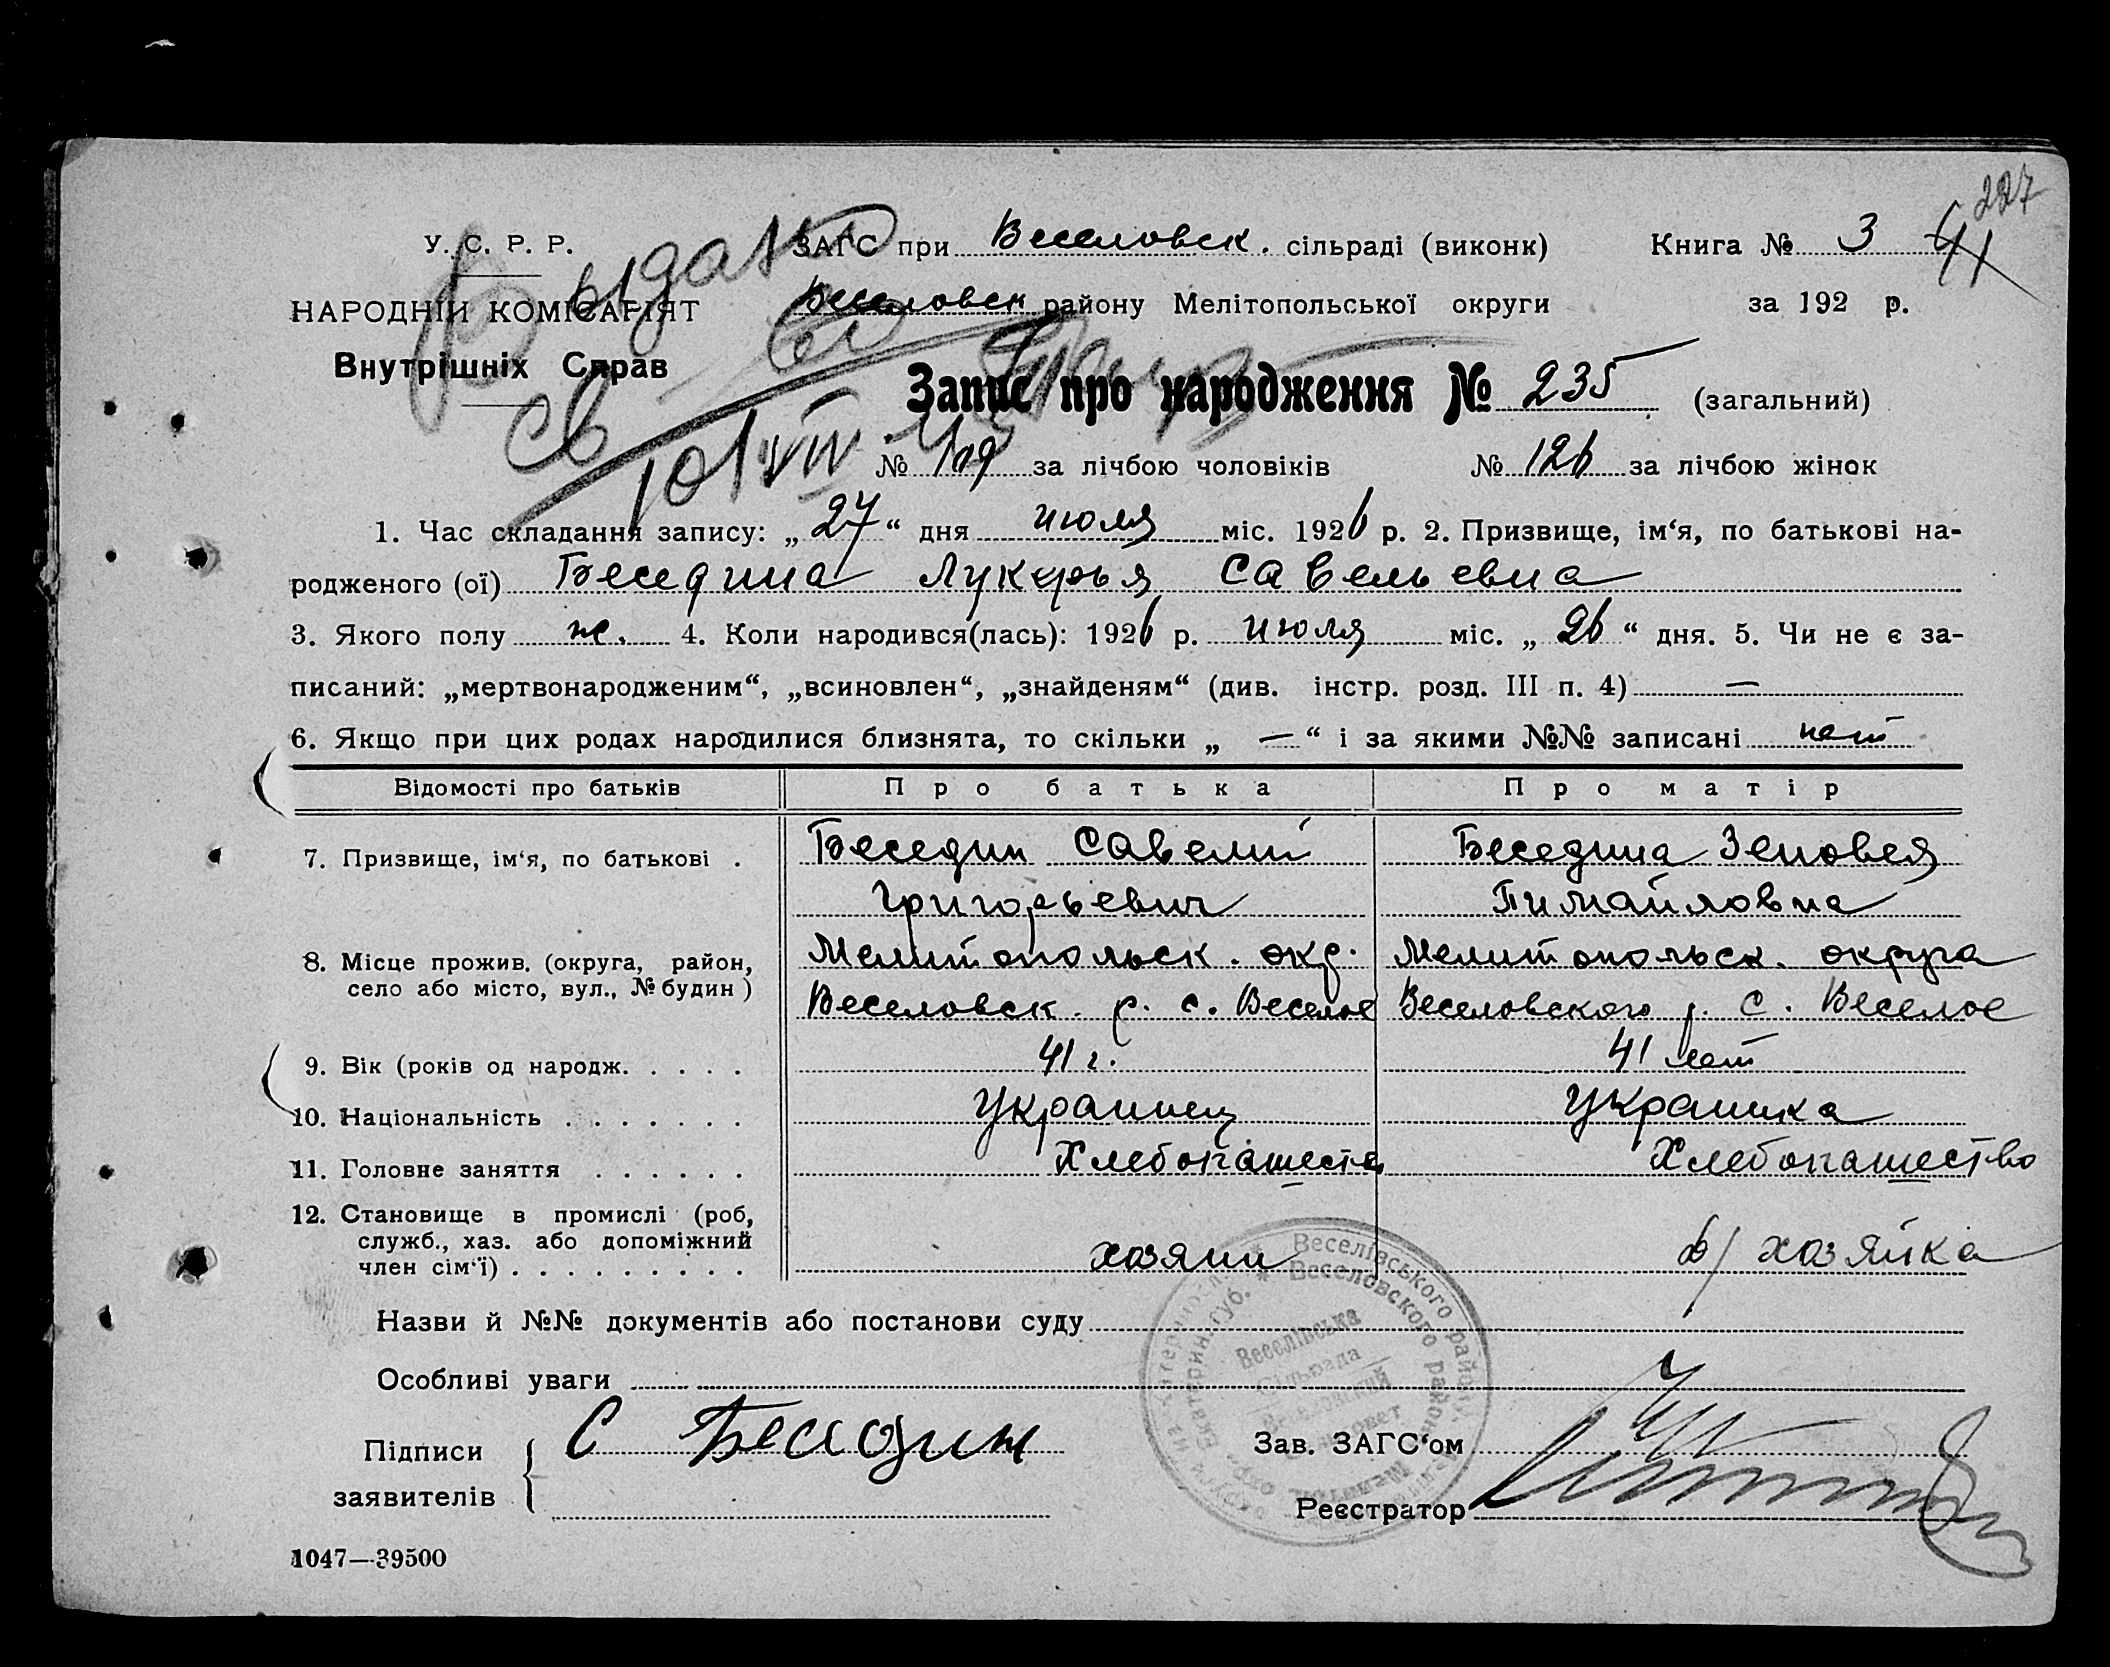 227
У. С. Р. Р. ЗАГС при Веселовск. сільраді (виконк) Книга № 3 41
Выдано
НАРОДНІЙ КОМІСАРІЯТ Веселовск району Мелітопольської округи за 192 р.
Внутрішніх Справ
св
Запис про народження № 235 (загальний)
10/VIII
№ 109 за лічбою чоловіків № 126 за лічбою жінок
1. Час складання запису: „27“ дня июля міс. 1926 р. 2. Призвище, ім‘я, по батькові на-
родженого (ої) Беседина Лукерья Савельевна
3. Якого полу ж. 4. Коли народився(лась): 1926 р. июля міс. „26“ дня. 5. Чи не є за-
писаний: „мертвонародженим“, „всиновлен“, „знайденям“ (див. інстр. розд. III п. 4) —
6. Якщо при цих родах народилися близнята, то скільки „—“ і за якими №№ записані нет
Відомості про батьків Про батька Про матір
7. Призвище, ім‘я, по батькові . Беседин Савелий Беседина Зеновея
Григорьевич Пимайловна
8. Місце прожив. (округа, район, Мелитопольск. окр. Мелитопольск. округа
село або місто, вул., № будин) Веселовск. р. с. Веселое Веселовского р. С. Веселое
9. Вік (років од народж. . . . . 41 г. 41 лет
10. Національність . . . . . . . Украинец Украинка
11. Головне заняття . . . . . . Хлебопашеств Хлебопашество
12. Становище в промислі (роб,
служб., хаз. або допоміжний
член сім‘ї) . . . . . . . . . хозяин д/хозяйка
Назви й №№ документів або постанови суду
Особливі уваги
Підписи С Беседин Зав. ЗАГС‘ом
заявителів Реєстратор
Веселівського району
Веселовского района
Екатерин. губ.
Веселівська
Сільрада
Веселовский
Сельсовет
1047—39500